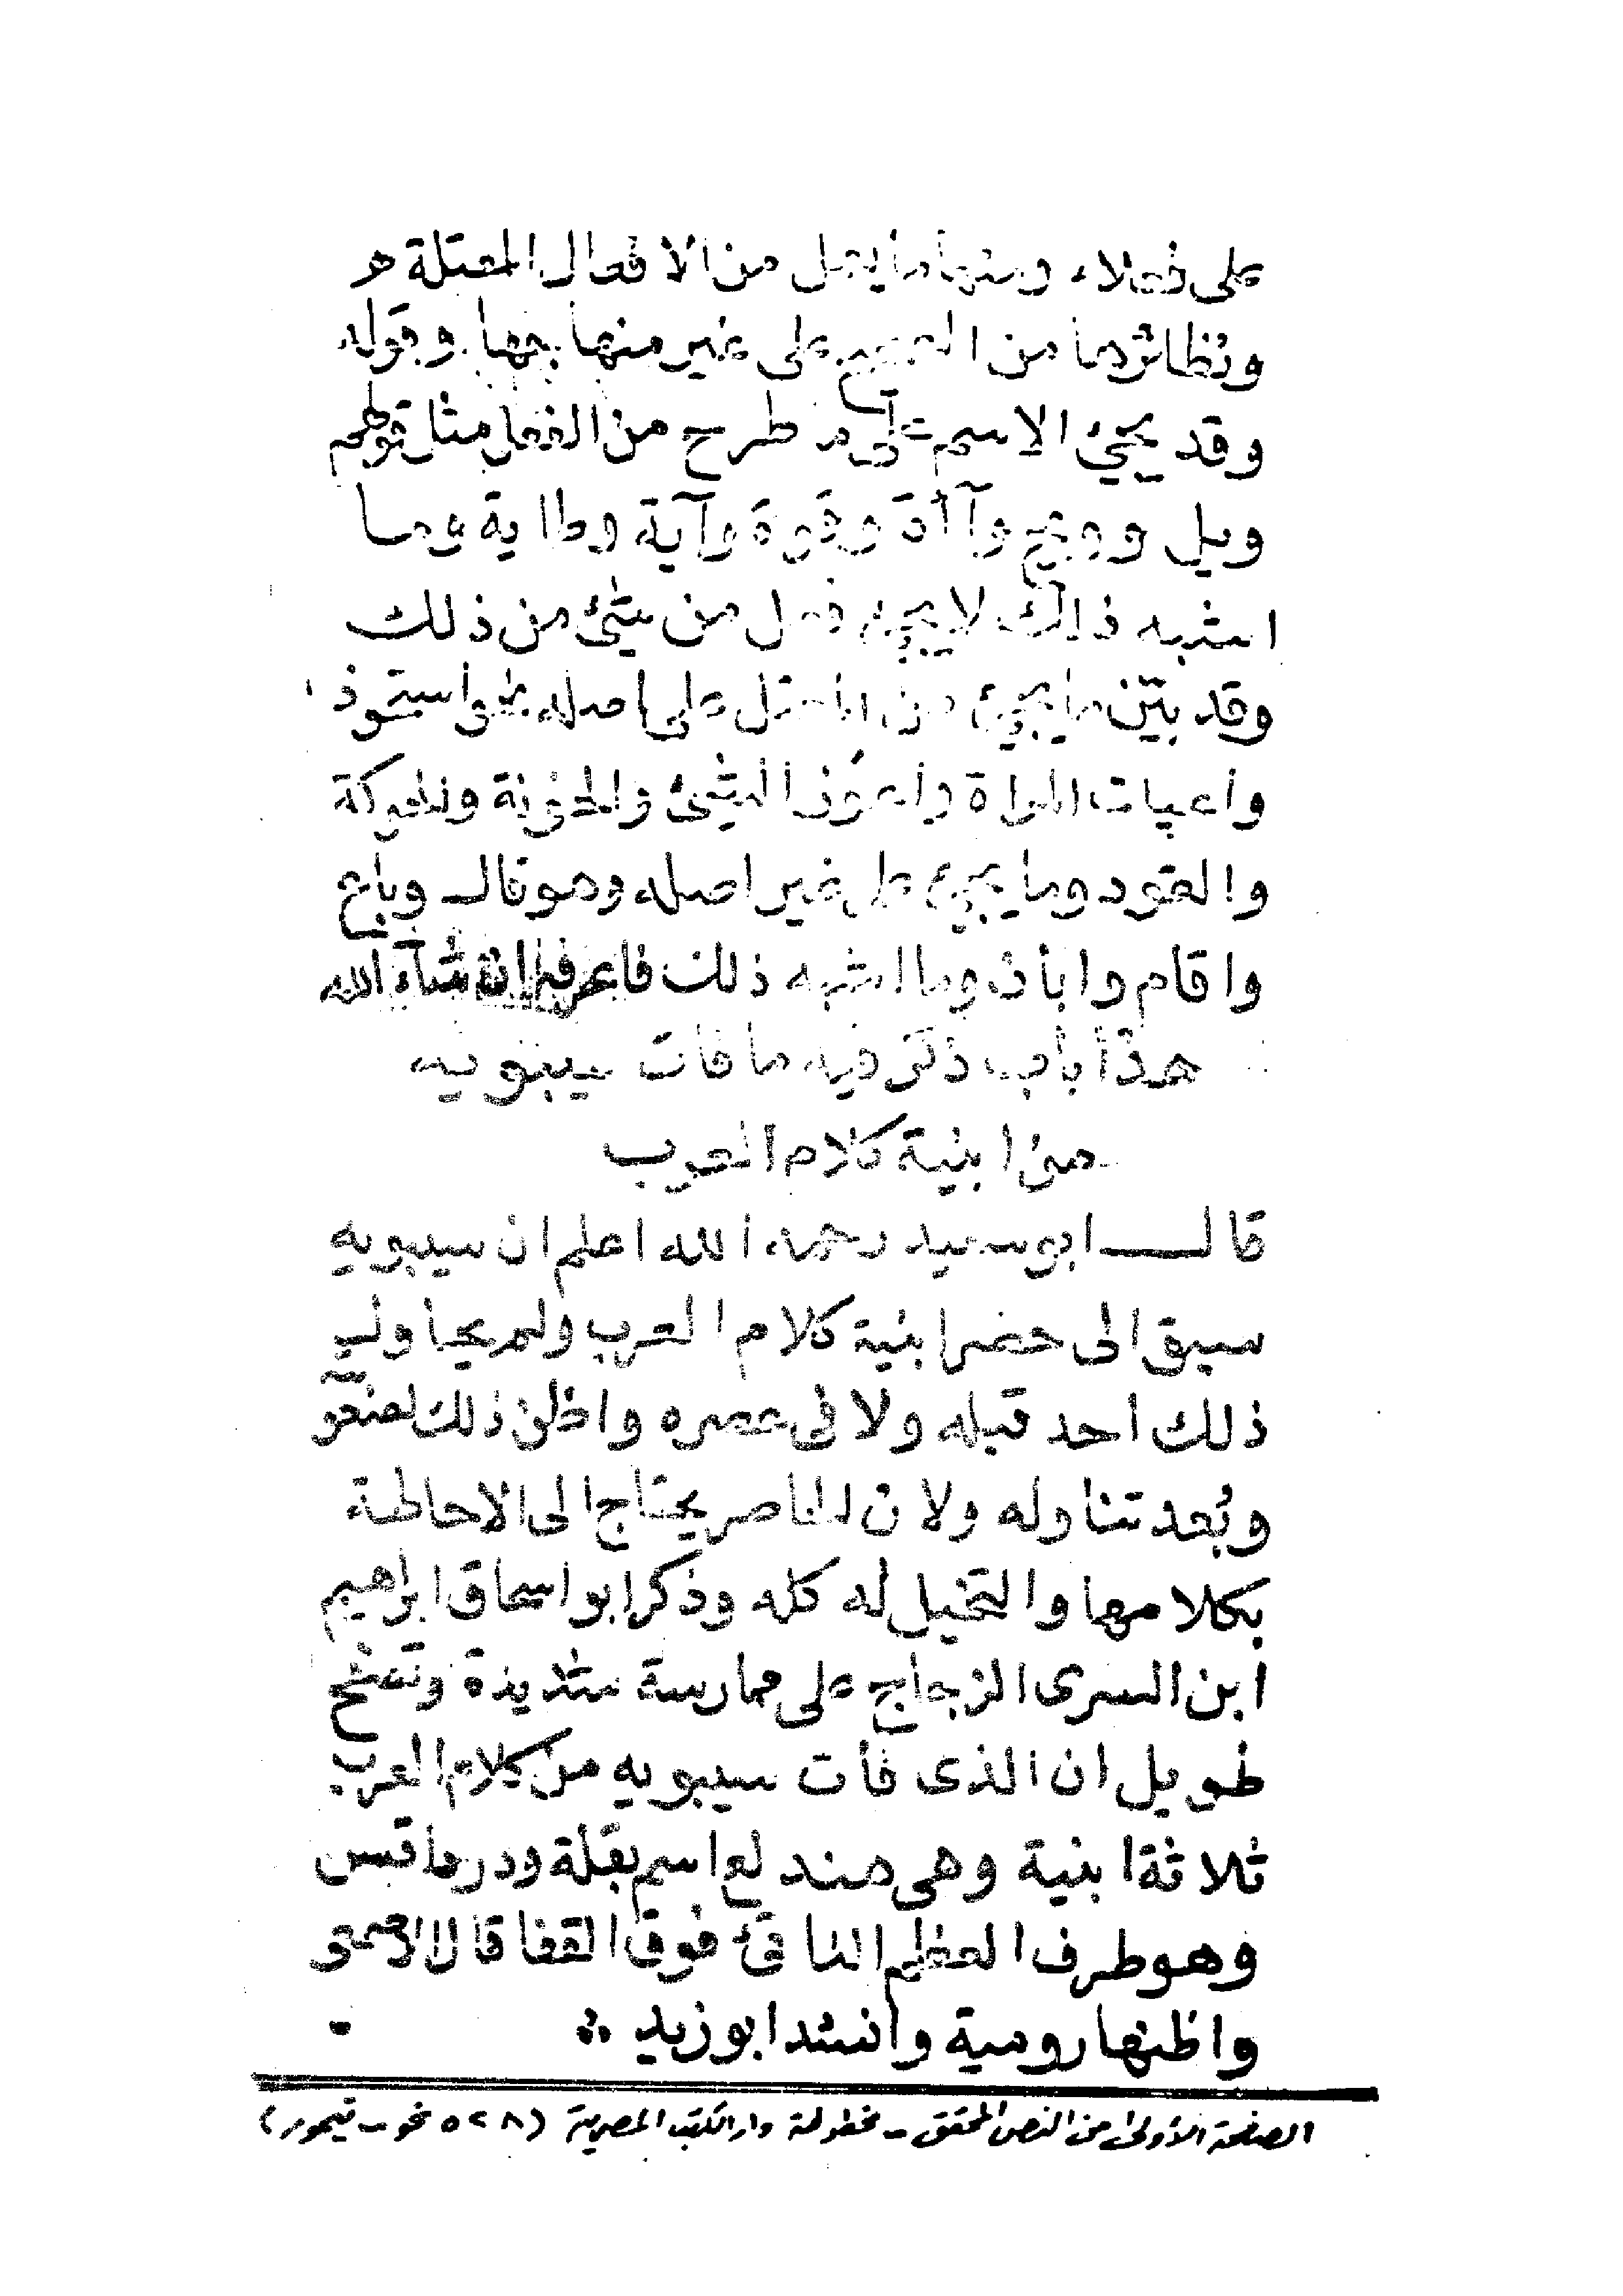 على فعلاء ومنها ما يعل من الافعال المعتلة هو
ونظائرهما من على غير منهاجها وقوله
وقد يجئ الاسم على ما طرح من الفعل مثل قولهم
ويل وويح وآأة وقوة وآية وطاية وما
اشبه ذلك لا يجئ فعل من شئ من ذلك
وقد بيّن ما يجئ من المعتل على اصله نحو استحوذ
واعيات المراة واعوز الشئ والخونة والحوكة
والقود وما يجئ على غير اصله وهو قال وباع
واقام وابان وما اشبه ذلك فاعرفه ان شاء الله
هذا باب ذكر فيه ما فات سيبويه
من ابنية كلام العرب
قال ابو سعيد رحمه الله اعلم ان سيبويه
سبق الى حصر ابنية كلام العرب ولم يحاول
ذلك احد قبله ولا فى عصره واظن ذلك لصعوبته
وبُعد تناوله ولان الحاصر يحتاج الى الاحاطة
بكلامها والتخيل له كله وذكر ابو اسحاق ابراهيم
ابن السرى الزجاج على ممارسة شديدة وتصفح
طويل ان الذى فات سيبويه من كلام العرب
ثلاثة ابنية وهى هندلع اسم بقلة ودرداقس
وهو طرف العظم الناتئ فوق القفا قال الاصمعى
واظنها رومية وانشد ابو زيد ∴
الصفحة الأولى من النص المحقق - مخطوطة دار الكتب المصرية (٥٢٨ نحو - تيمور)